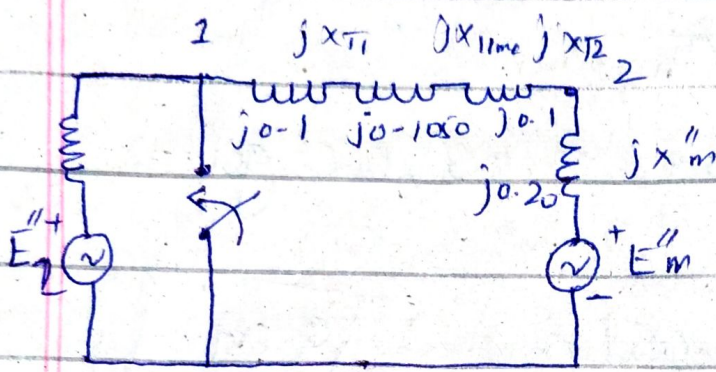 1 j XT1 jXline j XT2 2
j0-1 j0-1050 j0.1
j X"m
j0.20
E"g + + E"m
- -